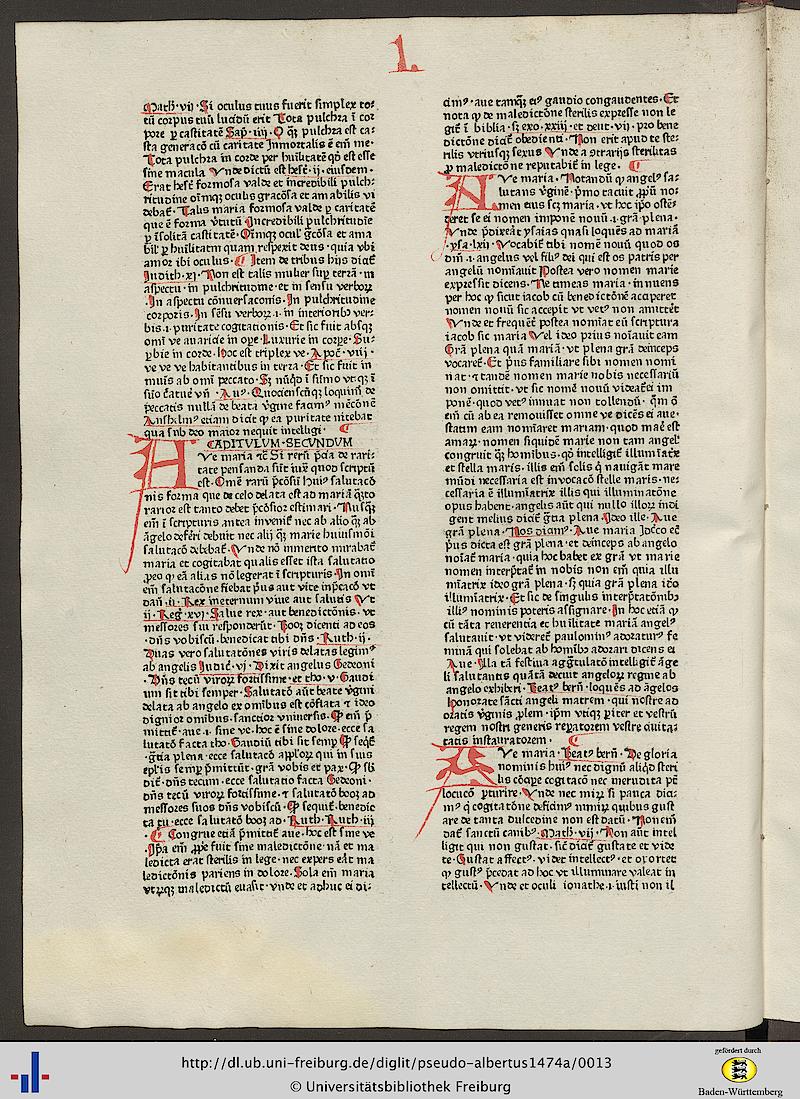 1.
Math̄·vi)·Si oculus tuus fuerit simplex to⸗
tū corpus tuū lucidū erit Tota pulchra ī cor
pore ꝑ castitatē Sap̄·iiij·O q̄ꝫ pulchra est ca⸗
sta generacō cū caritate Inmortalis ē eī me·
Tota pulchra in corde per hūilitatē qd̄ est esse
sine macula Vnde dictū est hest̄·ij·eiusdem·
Erat hest̄ formosa valde et incredibili pulch⸗
ritudine oīmqꝫ oculis gracōsa et amabilis vi
debat̄·Talis maria formosa valde ꝑ caritatē
que ē forma v̄tutū Incredibili pulchritudīe
ꝑ īsolitā castitatē·Oīmqꝫ ocul̄ gc̄osa et ama
bil̄ ꝑ hūilitatm quam respexit deus·quia vbi
amor ibi oculus·Item de tribus hijs dicat̄
Judith·xj·Non est talis mulier suꝑ terrā·in
aspectu·in pulchritudine·et in sensu verboꝝ
·In aspectu cōnuersaconis·In pulchritudine
corporis·In sēsu verboꝝ·i·in interiorib̄ ver⸗
bis·i·puritate cogitationis·Et sic fuit absqꝫ
omī ve auaricie in oꝑe·Luxurie in corꝑe·Su⸗
ꝑbie in corde·Hoc est triplex ve·Apoc̄·viij·
ve ve ve habitantibus in terra·Et sic fuit in
muīs ab omī peccato·Sꝫ nūqd̄ ī filmo vt qꝫ ī
suo c̄atūe vn̄·Auꝰ·Quociensc̄nqꝫ loquim̄ de
peccatis nullā de beata v̄gine facimꝰ mēcōnē
Anshelmꝰ etiam dicit ꝙ ea puritate nitebat̄
qua sub deo maior nequit intelligi·
CAPITULVM·SECVNDVM
Ve maria ⁊c̄ Si rerū p̄cia de rari⸗
tate pensanda sūt iuxᵉ quod scriptū
est·Omē rarū p̄cōsū huiꝰ salutacō
nis forma que de celo delata est ad mariā q̄to
rarior est tanto debet p̄cōsior estimari·Nusqꝫ
em̄ ī scripturis antea invenit̄ nec ab alio qꝫ ab
āgelo defēri debuit nec alij qꝫ marie huiusmōi
salutacō debebat̄·Vnde nō inmerito mirabat̄
maria et cogitabat qualis esset ista salutatio
ꝓeo ꝙ eā alias nō legerat ī scripturis·In omī
em̄ salutacōne fiebat p̄us aut vite inp̄cacō vt
dan̄·ii·Rex ineternum viue aut salutis Vt
ij·Reḡ·xvj·Salue rex·aut benedictōnis·vt
messores sui responderūt·Booz dicenti ad eos
·dn̄s vobiscū·benedicat tibi dn̄s·Ruth·ij·
Duas vero salutatōnes viris delatas legimꝰ
ab angelis Judic̄·vj·Dixit angelus Gedeoni
·Dn̄s tecū viroꝝ fortissime·et tho·v·Gaudi
um sit tibi semper·Salutatō aūt beate v̄gini
delata ab angelo ex omibus est cōflata ⁊ ideo
dignior omībus·sanctior vniuersis·Ꝙ em̄ p̄
mittit̄·aue·i·sine ve·hoc ē sine dolore·ecce sa
lutatō facta tho·Gaudiū tibi sit semꝑ·Ꝙ seqt̄
·gr̄ia plena·ecce salutacō apl̄oꝝ qui in suis
ep̄lis semꝑ p̄mittūt·grā vobis et pax·Ꝙ sb̄
dit̄·dn̄s tecum·ecce salutatio facta Gedeoni·
dn̄s tecū viroꝝ fortissime·⁊ salutatō booz ad
messores suos dn̄s vobiscū·Ꝙ sequit̄·benedic
ta tu·ecce salutatō booz ad·Ruth·Ruth·iij
Congrue etiā p̄mittit̄ aue·hoc est sine ve
·Ip̄a em̄ ꝓp̄e fuit sine maledictōne·nā et ma
ledicta erat sterilis in lege·nec expers eāt ma
ledictōnis pariens in dolore·Sola em̄ maria
vtrūqꝫ maledictū euasit·vnde et adhuc ei di⸗
cimꝰ·aue tamqꝫ eiꝰ gaudio congaudentes·Et
nota ꝙ de maledictōne sterilis expresse non le
git̄ ī biblia·sꝫ exo·xxiij·et deut·vij·pro bene
dictōne dicit̄ obedienti·Non erit apud te ste⸗
rilis vtriusqꝫ sexus Vnde a ɔtrarijs sterilitas
ꝓ maledictōne reputabit̄ in lege·
Ve maria·Notandū ꝙ angelꝰ sa⸗
lutans v̄ginē·p̄mo tacuit ꝓpū no⸗
men eius scꝫ maria·vt hoc ip̄o ostē⸗
deret se ei nomen imponē nouū·i·grā plena·
Vnde p̄dixeāt ysaias quasi loquēs ad mariā
·ysa·lxij·Vocabit̄ tibi nomē nouū quod os
dn̄i·i·angelus vel filiꝰ dei qui est os patris per
angelū nomīauit Postea vero nomen marie
expressit dicens·Ne timeas maria·innuens
per hoc ꝙ sicut iacob cū benedictōnē acciperet
nomen nouū sic accepit vt vetꝰ non amittēt
Vnde et frequēt̄ postea nomīat eū scriptura
iacob sic maria Vel ideo prius noīauit eam
Grā plena quā mariā·vt plena grā deinceps
vocaret̄·Et p̄us familiare sibi nomen nomi
nat·⁊ tandē nomen marie nobis necessariū
non omittit·vt sic nomē nouū videat̄ei im
ponē·quod vetꝰ innuat non tollendū·Qm̄ ō
em̄ cū ab ea remouisset omne ve dicēs ei aue·
statim eam nomīaret mariam·quod mar̄ est
amaꝝ·nomen siquidē marie non tam angel̄
congruit qꝫ homibus·qd̄ intelligit̄ illumīat̄x
et stella maris·illis em̄ solis q̄ nauigāt mare
mūdi necessaria est invocacō stelle maris·ne⸗
cessaria ē illumīatrix illis qui illuminatōne
opus habent·angelis aūt qui nullo illoꝝ indi
gent melius dicit̄ gr̄ia plena·Ideo ille·Aue
grā plena·Nos dicamꝰ·Aue maria Jdcco eē
p̄us dicta est grā plena·et deinceps ab angelo
noīat̄ maria·quia hoc habet ex grā vt marie
nomen interp̄tat̄ in nobis non em̄ quia illu
mīatrix ideo grā plena·sꝫ quia grā plena ido
illumīatrix·Et sic de singulis interp̄tatōnibꝫ
illiꝰ nominis poteris assignare·In hoc etiā ꝙ
cū tāta reuerentia et hūilitate mariā angelꝰ
salutauit·vt videret̄ paulominꝰ adoraturꝰ fe
minā qui solebat ab homībꝫ adorari dicens ei
Aue·Illa tā festiua aggr̄tulatō intelligit̄ āge
li salutantis quātā decuit angeloꝝ regine ab
angelo exhiberi·Beatꝰ bern̄·loquēs ad āgelos
Honorate sācti angeli matrem·qui nostre ad
oratis v̄ginis ꝓlem·ip̄m vtiqꝫ ꝑiter et vestrū
regem nostri generis reꝑatorem vestre ciuita⸗
tatis instauratorem·
Ve maria·Beatꝰ bern̄·De gloria
nominis huiꝰ nec dignū aliqd̄ steri
lis cōcipe cogitacō nec inerudita pt̄
locucō ꝓturire·Vnde nec mirꝝ si pauca dici⸗
mꝰ q̄ cogitatōne deficimꝰ nimiꝝ quibus gust
are de tanta dulcedine non est datū·Non em̄
dat̄ sanctū canibꝰ·Math̄·vij·Non aūt intel
ligit qui non gustat·sic̄ dicit̄ gustate et vide
te·Gustat affectꝰ·videt intellectꝰ·et oportet
ꝙ gustꝰ p̄cedat ad hoc vt illuminare valeat in
tellectū·Vnde et oculi ionathe·i·iusti non il
http://dl.ub.uni-freiburg.de/diglit/pseudo-albertus1474a/0013
© Universitätsbibliothek Freiburg
gefördert durch
Baden-Württemberg